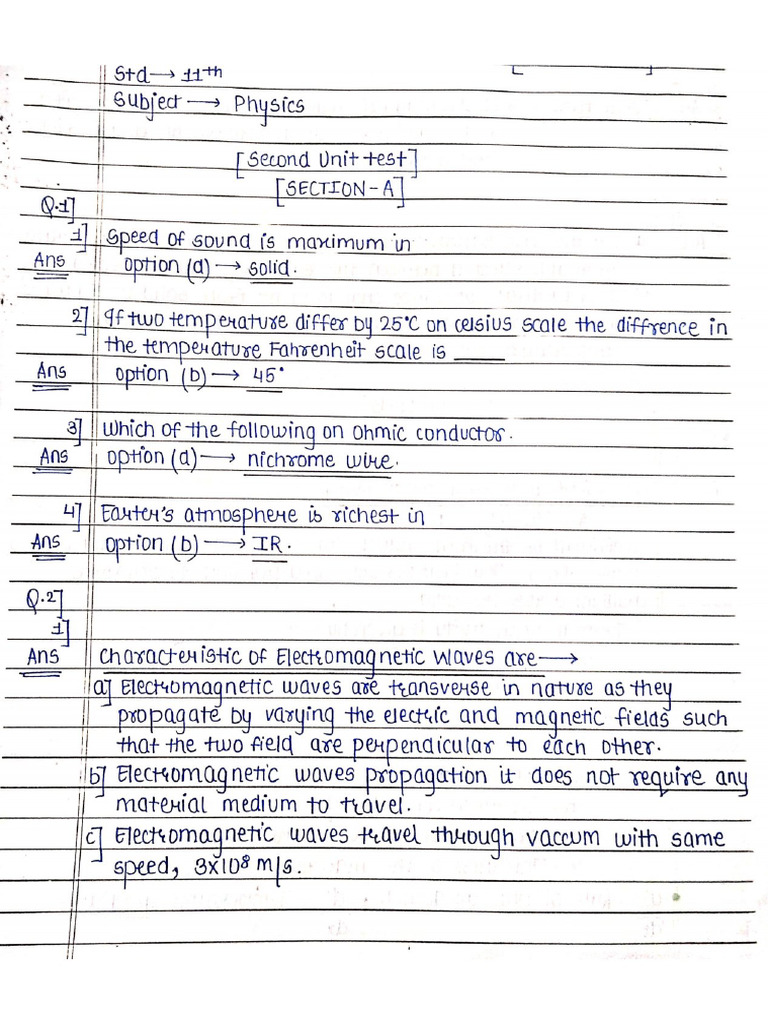 Std → 11th
[ ]
Subject → Physics
[Second Unit test]
[SECTION-A]
Q.1]
1] Speed of sound is maximum in
Ans option (a) → solid.
2] If two temperature differ by 25°C on celsius scale the diffrence in
the temperature Fahrenheit scale is ____
Ans option (b) → 45°
3] Which of the following on ohmic conductor.
Ans option (a) → nichrome wire.
4] Earter's atmosphere is richest in
Ans option (b) → IR.
Q.2]
1]
Ans Characteristic of Electromagnetic Waves are →
a] Electromagnetic waves are transverse in nature as they
propagate by varying the electric and magnetic fields such
that the two field are perpendicular to each other.
b] Electromagnetic waves propagation it does not require any
material medium to travel.
c] Electromagnetic waves travel through vaccum with same
speed, 3x10⁸ m/s.